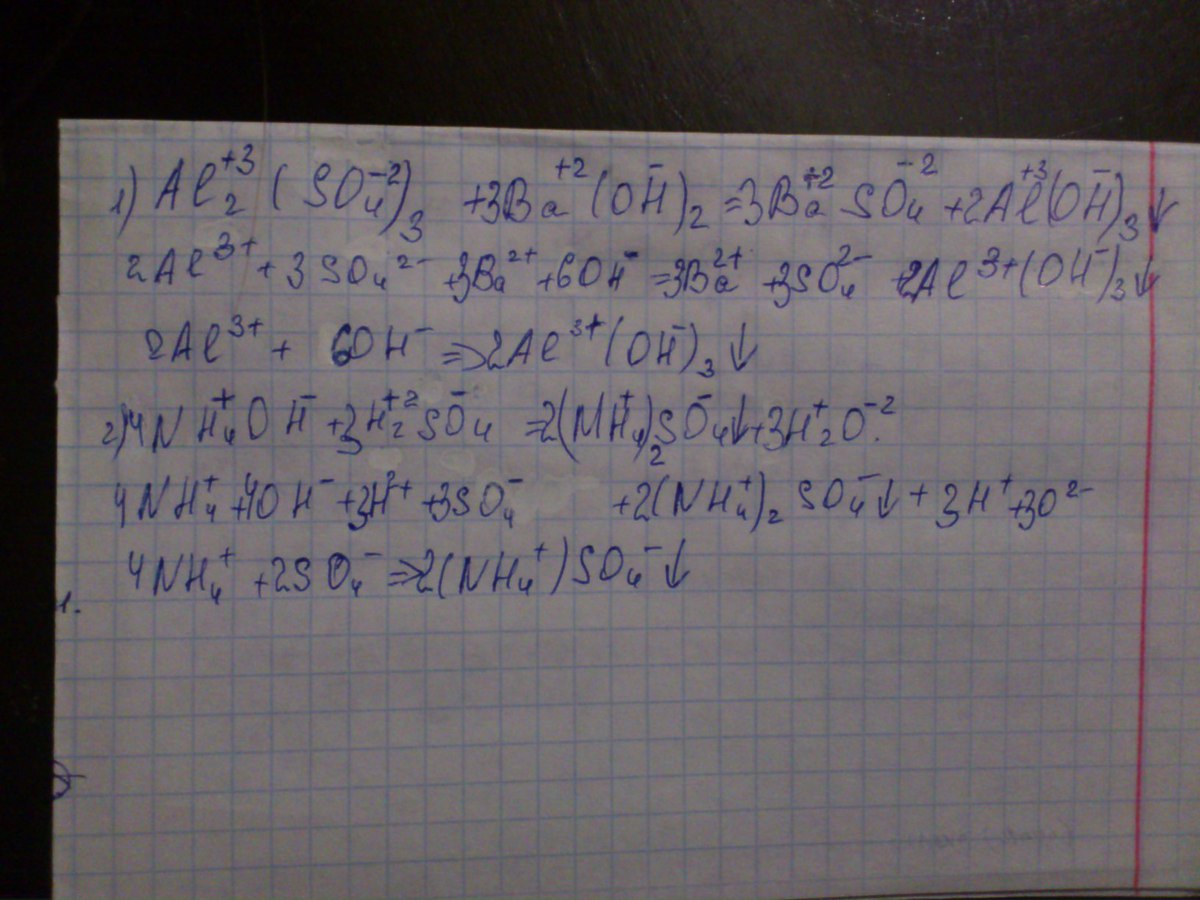 1) Al₂⁺³(SO₄⁻²)₃ +3Ba⁺²(OH⁻)₂ =3Ba⁺²SO₄⁻² +2Al⁺³(OH⁻)₃↓
2Al³⁺ + 3SO₄²⁻ +3Ba²⁺ +6OH⁻ =3Ba²⁺ +3SO₄²⁻ +2Al³⁺(OH⁻)₃↓
2Al³⁺ + 6OH⁻ => 2Al³⁺(OH⁻)₃↓
2) 4NH₄⁺OH⁻ +3H₂⁺²SO₄⁻ =2(NH₄⁺)₂SO₄⁻↓+3H₂⁺O⁻².
4NH₄⁺ +4OH⁻ +3H²⁺ +3SO₄⁻ +2(NH₄⁺)₂SO₄⁻↓ + 3H⁺ +3O²⁻
4NH₄⁺ +2SO₄⁻ =>2(NH₄⁺)SO₄⁻↓
1.